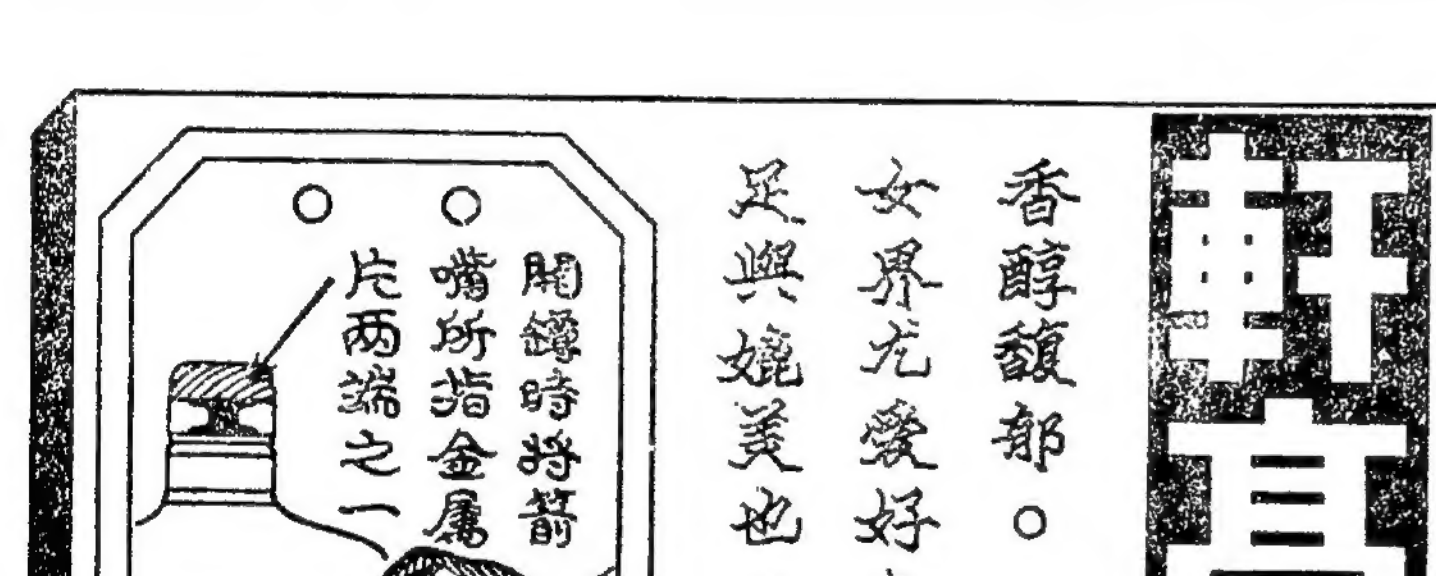 軒
香醇馥郁。
女界尤愛好
足與媲美也
開罇時將箭
嘴所指金属
片两端之一